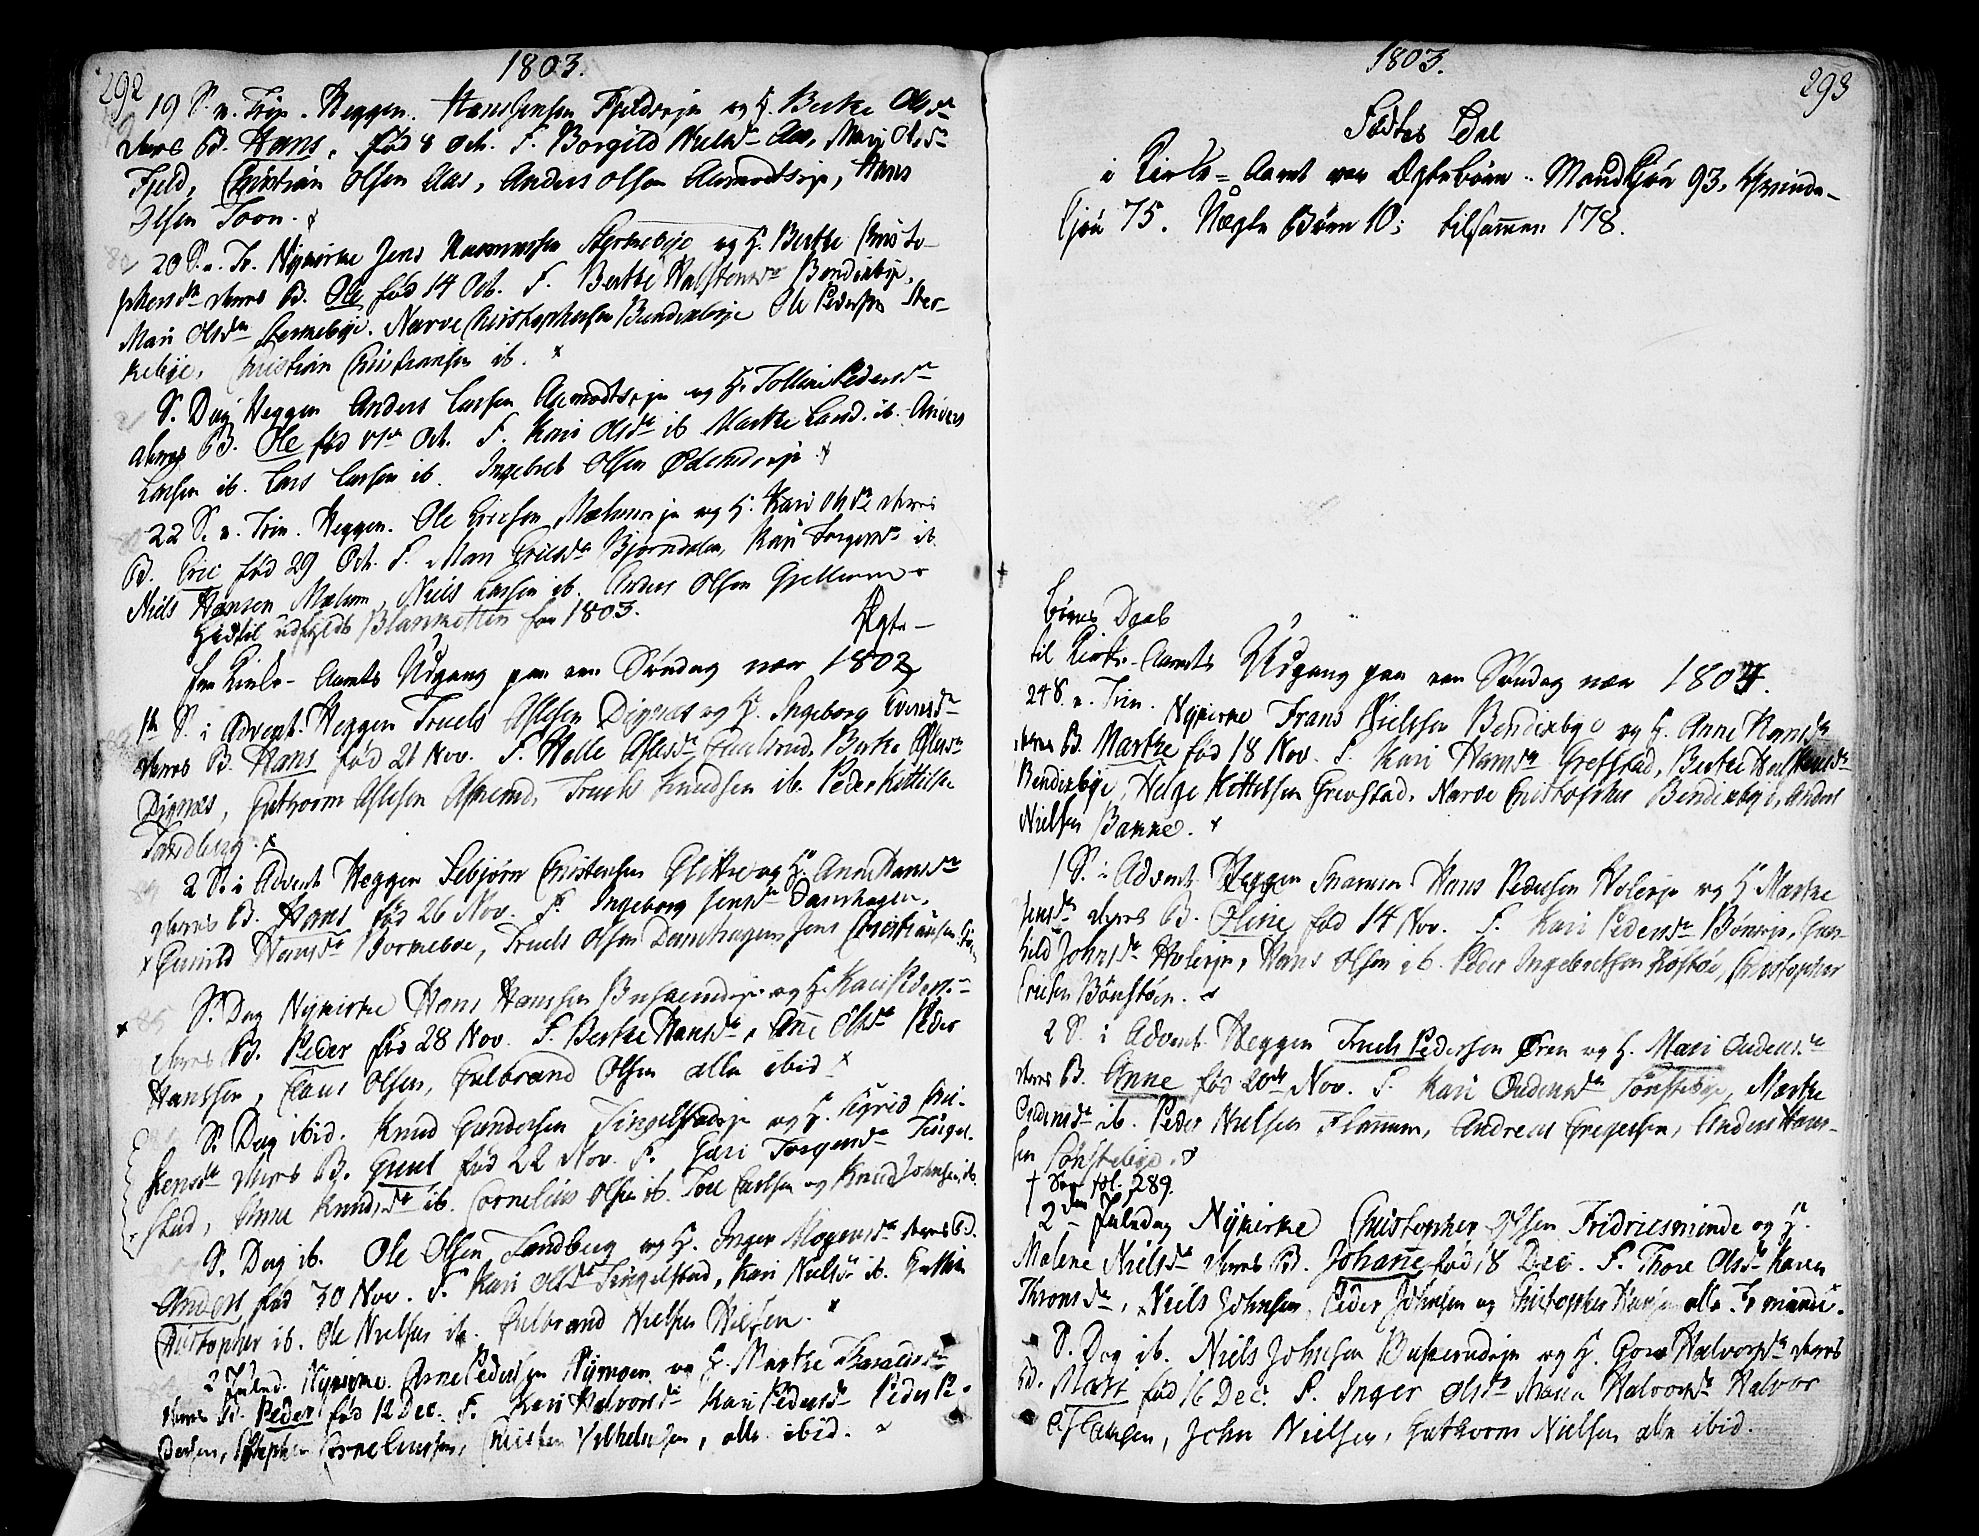 292
1803.
19 S. n. Trin. Heggen. Hans Jensen Fjeldseje og H. Berthe Olsdr
deres B. Hans, fød 8 Oct. F. Borgild Nielsdr Aas, Mari Olsdr
Fjeld, Christian Olsen Aas, Anders Olsen Aamodtseje, Hans
Olsen Toen.
20 S. n. Tr. Nykirke Jens og H. Berthe Christo-
phersdr deres B. Ole fød 14 Oct. F. Berthe Halstensdr Bendixbye,
Mari Olsdr Narve Christophersen Bendixbye Ole Pedersen Ster-
kebye, Christian Christiansen ib.
S. Dag Heggen Anders Larsen Aamodtseje og H. Pedersdr
deres B. Ole fød Oct. F. Kari Olsdr ib Marthe ib. Anders
Larsen ib. Lars Larsen ib. Ingebret Olsen
22 S. n. Trin. Heggen. Ole Ericsen og H. Kari Olsdr deres
B. Eric fød 29 Oct. F. Mari Ericsdr Bjørndalen, Kari ib.
Niels Hansen Mælum, Niels Larsen ib. Anders Olsen
Hidtil udfyldt Blanketten for 1803.
Ægte
fra Kirke-Aarets Udgang paa een Søndag nær 1802
1te S. i Advent. Heggen Truels Aslesen Dignæs og H. Ingeborg Evensdr
deres B. Hans fød 21 Nov. F. Helle Berthe
Dignæs, Guthorm Aslesen Truels Knudsen ib. Peder Kittilsen
Sandberg.
2 S. i Advent Heggen Sebjørn Christensen og H. Anne Hansdr
deres B. Hans fød 26 Nov. F. Ingeborg Jensdr Damhagen,
Gunild Hansdr Truels Olsen Damhagen Jens Christiansen
S. Dag Nykirke Hans Hansen Buskerudeje og H. Kari Pedersdr
deres B. Peder fød 28 Nov. F. Berthe Hansdr, Anne Olsdr Peder
Hansen, Claus Olsen, Gulbrand Olsen alle ibid
S. Dag ibid. Knud Gundersen Tingelstadeje og H. Sigrid Chri-
stensdr deres B. fød 22 Nov. F. Gari Torgersdr Tingel-
stad, Anne Knudsdr ib. Cornelius Olsen ib. Tore Carlsen og Knud Johnsen ib.
S. Dag ib. Ole Olsen Sandberg og H. Inger Mogensdr deres B.
Anders fød 30 Nov. F. Kari Olsdr Tingelstad, Kari Nielsdr ib.
Christopher ib. Ole Nielsen ib. Gulbrand Nielsen
2 Juled. Nykirke. Arne Pedersen Nymoen og H. Marthe
deres B. Peder fød 12 Dec. F. Kari Halvorsdr Kari Pedersdr Peder Pe-
dersen, Stephen Cornelinssen, Christen Vilhelmsen, alle ibid.
1803.
293
Sidstes Tal
i Kirke-Aaret var Ægtebørn. Mandkjøn 93, Qvinde-
kjøn 75. Uægte Børn 10; tilsammen 178.
Børne Daab
til Kirke-Aarets Udgang paa een Søndag nær 1804.
24 S. n. Trin. Nykirke Frans Nielsen Bendixbye og H. Anne Hansdr
deres B. Marthe fød 18 Nov. F. Kari Hansdr Grefstad, Berthe Halstensdr
Bendixbye, Helge Kittelsen Grevstad, Narve Christopher Bendixbye, Anders
Nielsen Bakke.
1 S. i Advent Heggen Snarum Hans Pedersen Holeseje og H. Marthe
Jensdr deres B. Oline fød 14 Nov. F. Kari Pedersdr Gun-
hild Johnsdr Holeseje, Hans Olsen ib. Peder Ingebretsen Christopher
Ericsen
2 S. i Advent Heggen Truels Pedersen Øren og H. Mari Oudensdr
deres B. Anne fød 20de Nov. F. Kari Oudensdr Sønstebye, Marthe
Oudensdr ib. Peder Nielsen Andreas Gregersen, Anders Hans-
sen Sønstebye.
† See fol. 289.
2den Juledag Nykirke Christopher Olsen Fridricsminde og H.
Malene Nielsdr deres B. Johanne fød 8 Dec. F. Thore Olsdr Karen
Thronsdr, Niels Johnsen, Peder Johnsen og Christopher alle Fr minde.
S. Dag ib. Niels Johnsen Buskerudeje og H. Goro Halvorsdr deres
B. fød 16 Dec. F. Inger Olsdr Maria Halvorsdr Halvor
John Nielsen, Guthorm Nielsen alle ibid.